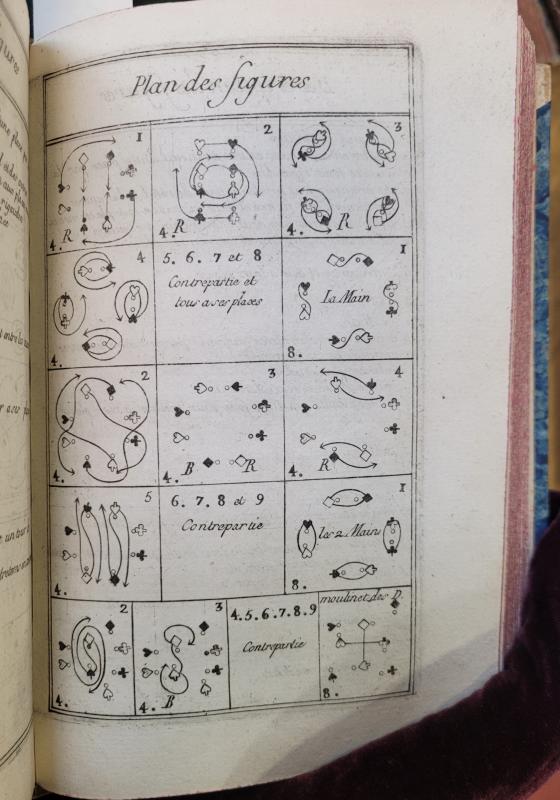 Plan des figures
1
4. R
2
4. R
3
4. R
4
4.
5. 6. 7 et 8
Contrepartie et
tous a ses places
1
La Main
8.
2
4.
3
4. B R
4
4. R
5
4.
6. 7. 8 et 9
Contrepartie
1
les 2 Main
8.
2
4.
3
4. B
4.5.6.7.8.9
Contrepartie
moulinet des D.
8.